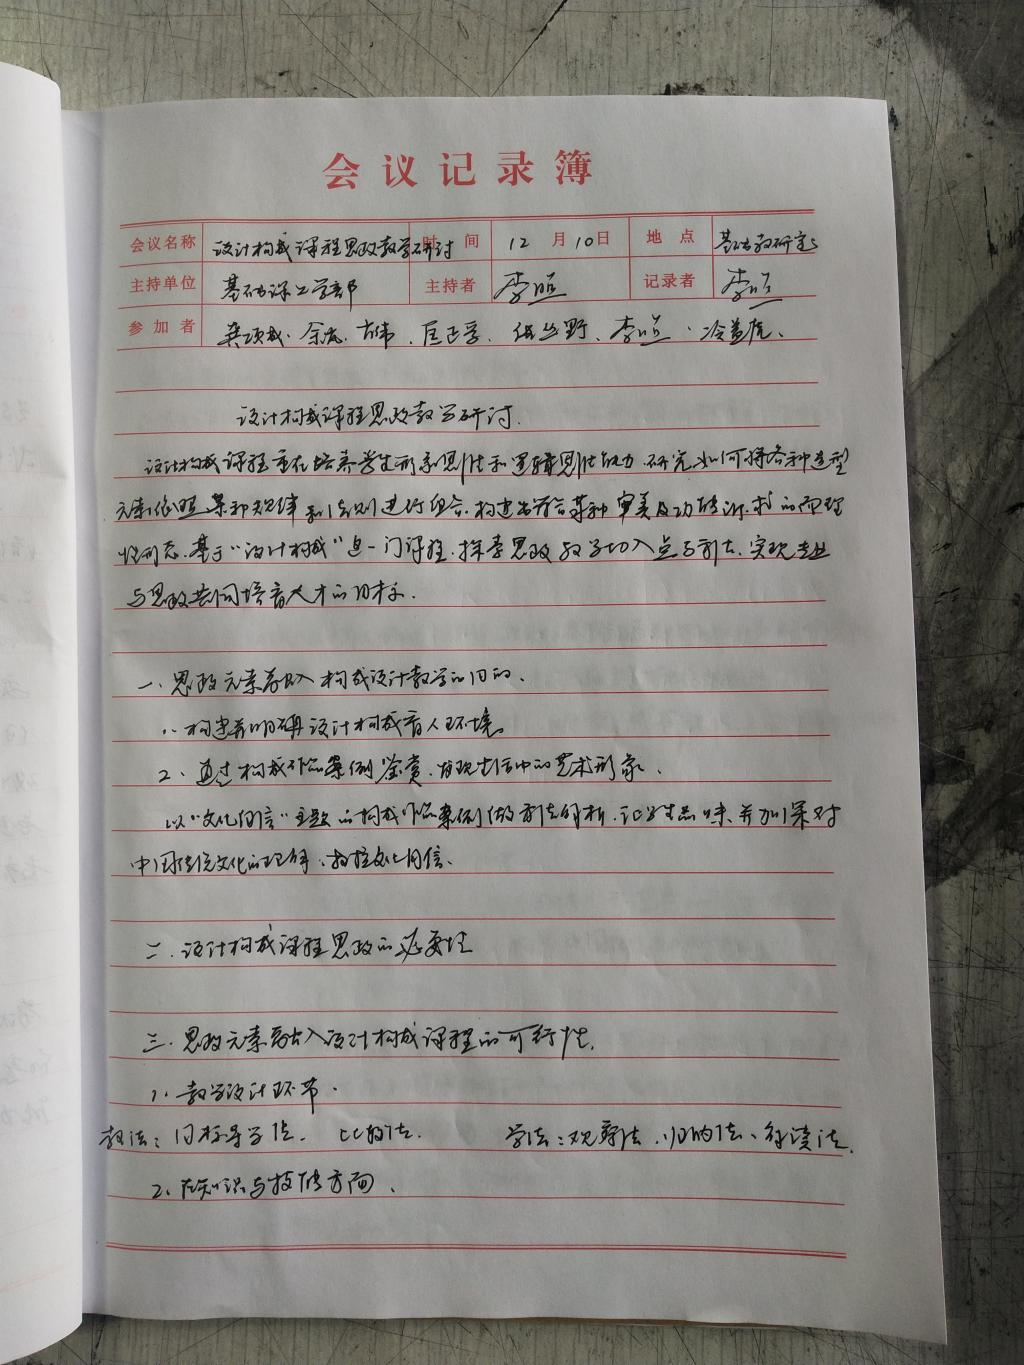 会议记录簿
会议名称 设计构成课程思政教学研讨 时间 12月10日 地点 基础教研室
主持单位 基础课工学部 主持者 李 记录者 李
参加者 余 李
设计构成课程思政教学研讨.
设计构成课程重在培养学生形象思维和逻辑思维能力.研究如何将各种造型
元素依照某种规律和法则进行组合.构建出符合某种审美及功能诉求的而理
性形态.基于“设计构成”这一门课程.探索思政教学切入点与方法.实现专业
与思政共同培育人才的目标.
一.思政元素融入构成设计教学的目的.
1.构建并明确设计构成育人环境.
2.通过构成作品案例鉴赏.发现生活中的艺术形象.
以“文化自信”主题的构成作品案例做方法解析.让学生品味、并加深对
中国传统文化的理解.文化自信.
二.设计构成课程思政的必要性
三.思政元素融入设计构成课程的可行性.
1.教学设计环节.
教法:目标导学法. 比较法. 学法:观察法.归纳法、
2.在知识与技能方面.